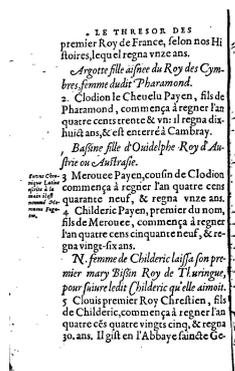 LE THRESOR DES
premier Roy de France, selon nos Hi
stoires, lequel regna vnze ans.
Argotte fille aisnee du Roy des Cym-
bres, femme dudit Pharamond.
2. Clodion le Cheuelu Payen, fils de
Pharamond, commença à regner l'an
quatre cents trente & vn: il regna dix-
huict ans, & est enterré à Cambray.
Basine fille d'Ouidelphe Roy d'Au-
strie ou Austrasie.
3 Merouee Payen, cousin de Clodion
commença à regner l'an quatre cens
quarante neuf, & regna vnze ans.
4 Childeric Payen, premier du nom,
fils de Merouee, commença à regner
l'an quatre cens cinquante neuf, & re-
gna vingt-six ans.
N. femme de Childeric laissa son pre-
mier mary Bissin Roy de Thuringue,
pour suiure ledit Childeric qu'elle aimoit.
5 Clouis premier Roy Chrestien, fils
de Childeric, commença à regner l'an
quatre cẽs quatre vingts cinq, & regna
30. ans. Il gist en l'Abbaye saincte Ge-